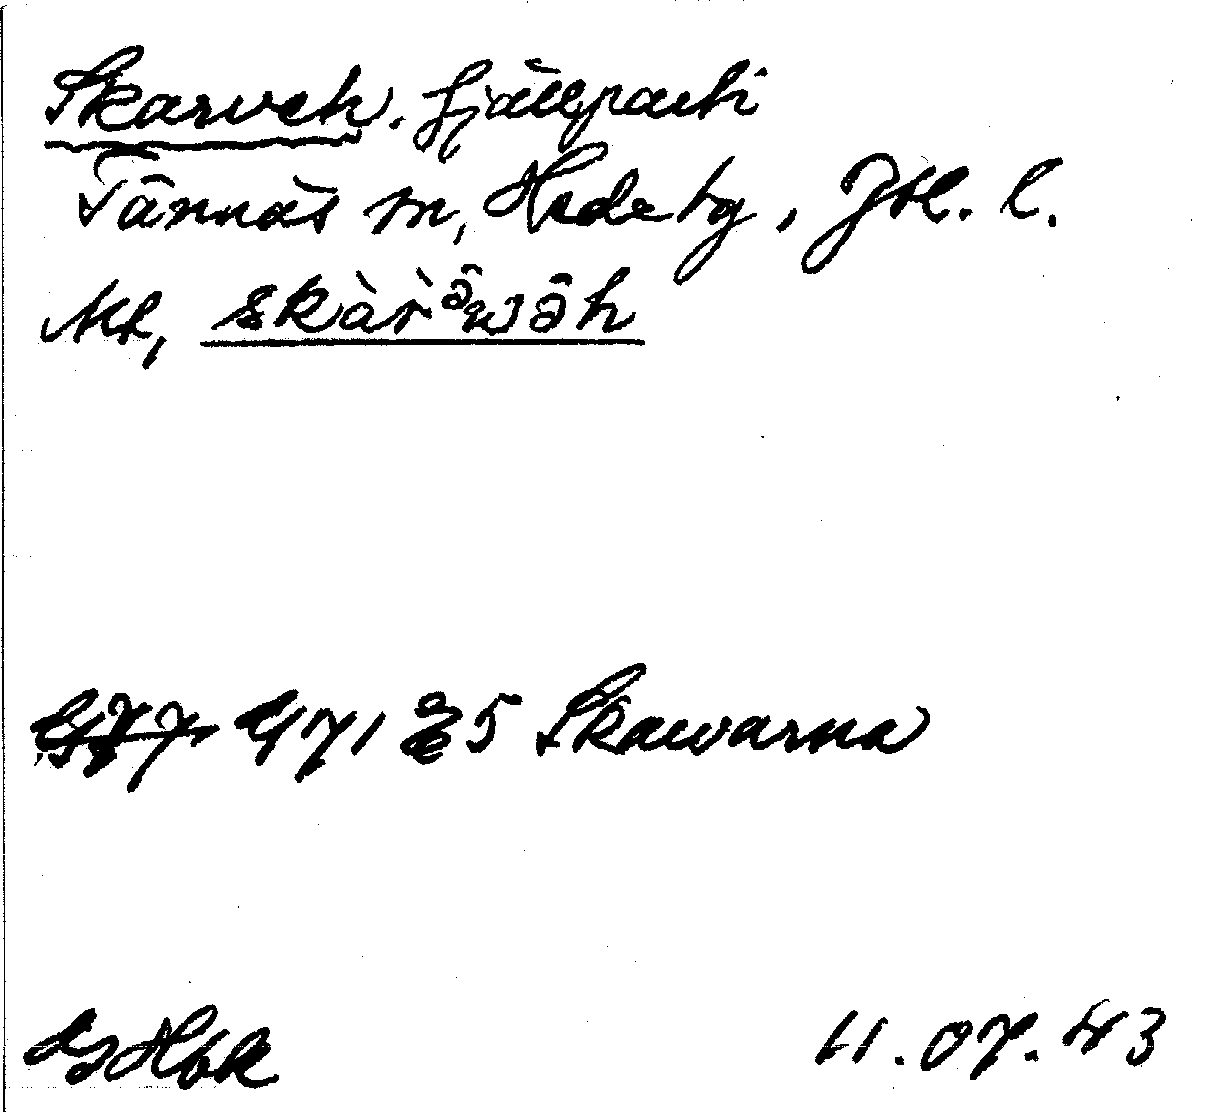 Skarveh. fjällparti
Tännäs sn, Hede tg, Jtl. l.
skàr̀ə̂wə̂h
G71 25 Skawarna
GHbk 11.07.43